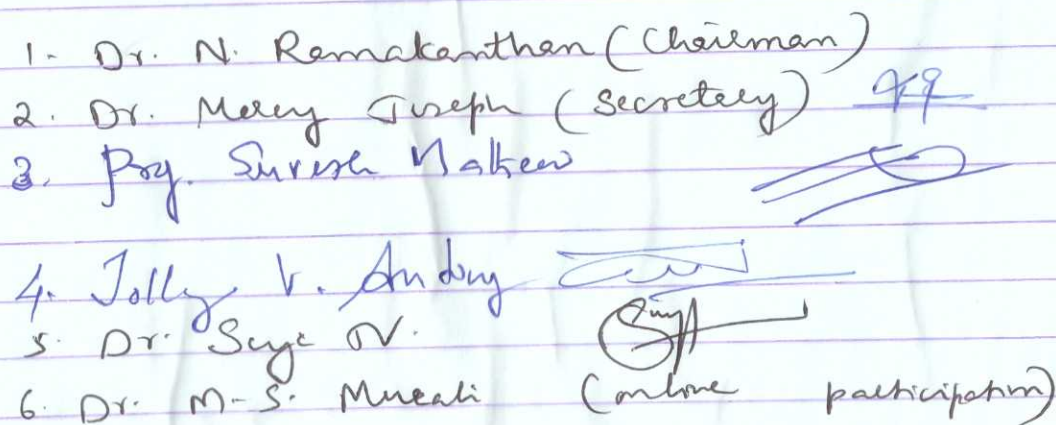 1- Dr. N. Ramakanthan (Chairman)
2. Dr. Mercy Joseph (Secretary)
3. Prof. Suresh Mathew
4. Jolly V. Antony
5. Dr. Suja
6. Dr. M-S. Murali (online participation)